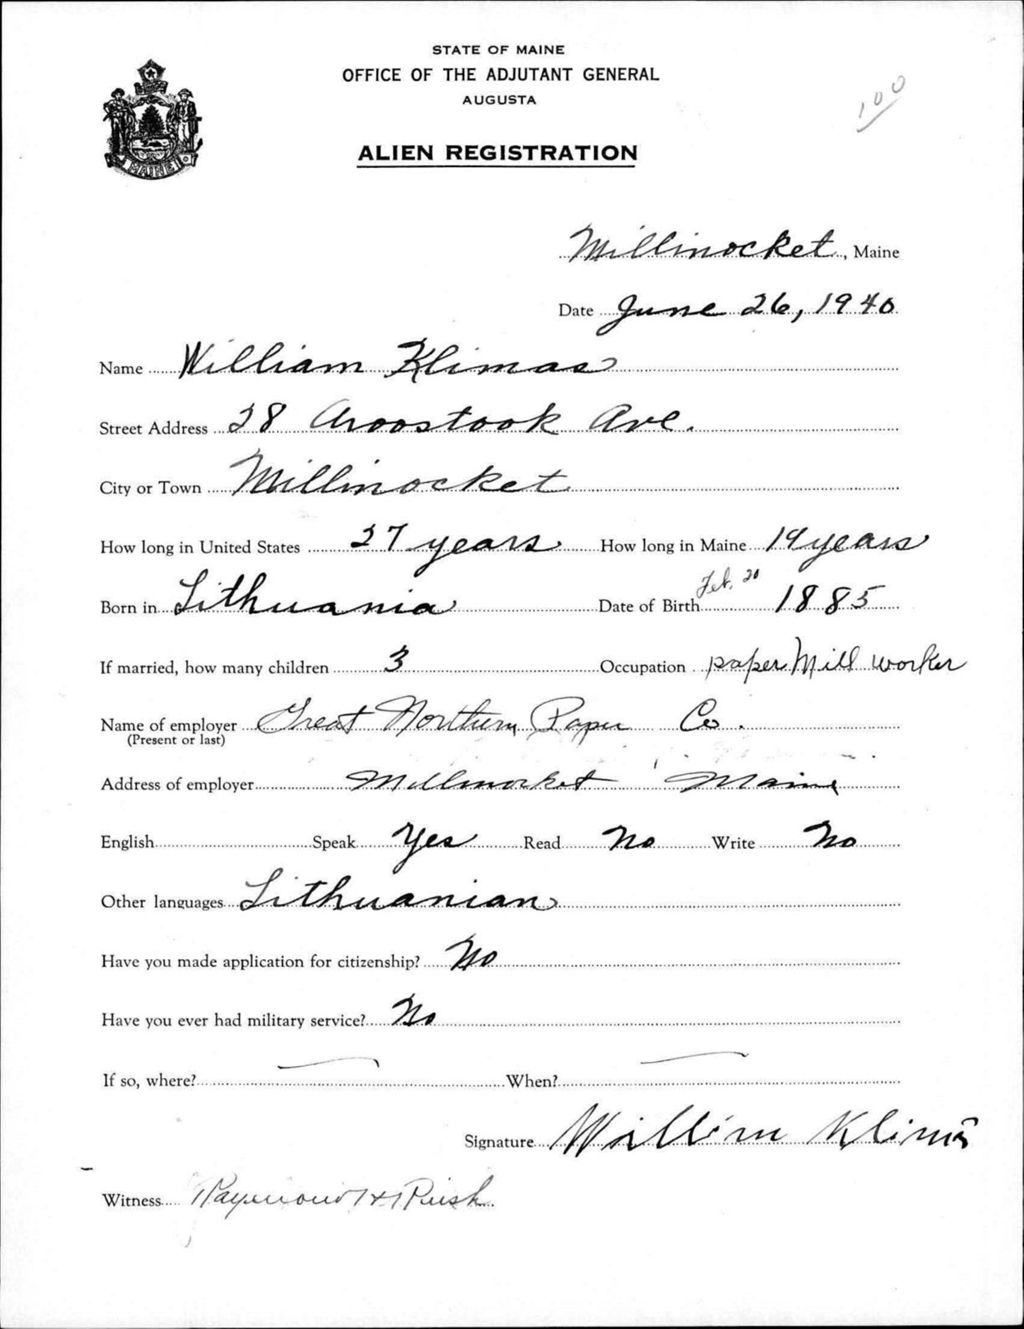 STATE OF MAINE
OFFICE OF THE ADJUTANT GENERAL
AUGUSTA
100
ALIEN REGISTRATION
MAINE
Millinocket, Maine
Date June 26, 1940
Name William Klimas
Street Address 28 Aroostook Ave.
City or Town Millinocket
How long in United States 27 years How long in Maine 19 years
Born in Lithuania Date of Birth Feb. 20 1885
If married, how many children 3 Occupation paper Mill worker
Name of employer Great Northern Paper Co.
(Present or last)
Address of employer Millinocket Maine
English Speak Yes Read No Write No
Other languages Lithuanian
Have you made application for citizenship? No
Have you ever had military service? No
If so, where? — When? —
Signature Willim Klims
Witness Raymond H